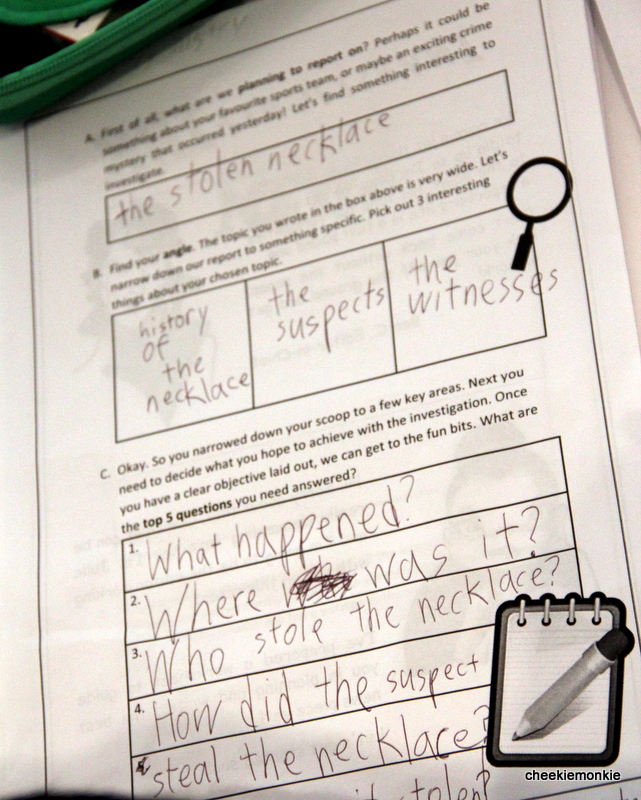 A. First of all, what are we planning to report on? Perhaps it could be
something about your favourite sports team, or maybe an exciting crime
mystery that occurred yesterday! Let's find something interesting to
investigate.
the stolen necklace
B. Find your angle. The topic you wrote in the box above is very wide. Let's
narrow down our report to something specific. Pick out 3 interesting
things about your chosen topic.
history
of
the
necklace
the
suspects
the
witnesses
C. Okay. So you narrowed down your scoop to a few key areas. Next you
need to decide what you hope to achieve with the investigation. Once
you have a clear objective laid out, we can get to the fun bits. What are
the top 5 questions you need answered?
1. What happened?
2. Where was it?
3. Who stole the necklace?
4. How did the suspect
steal the necklace?
it stolen?
cheekiemonkie